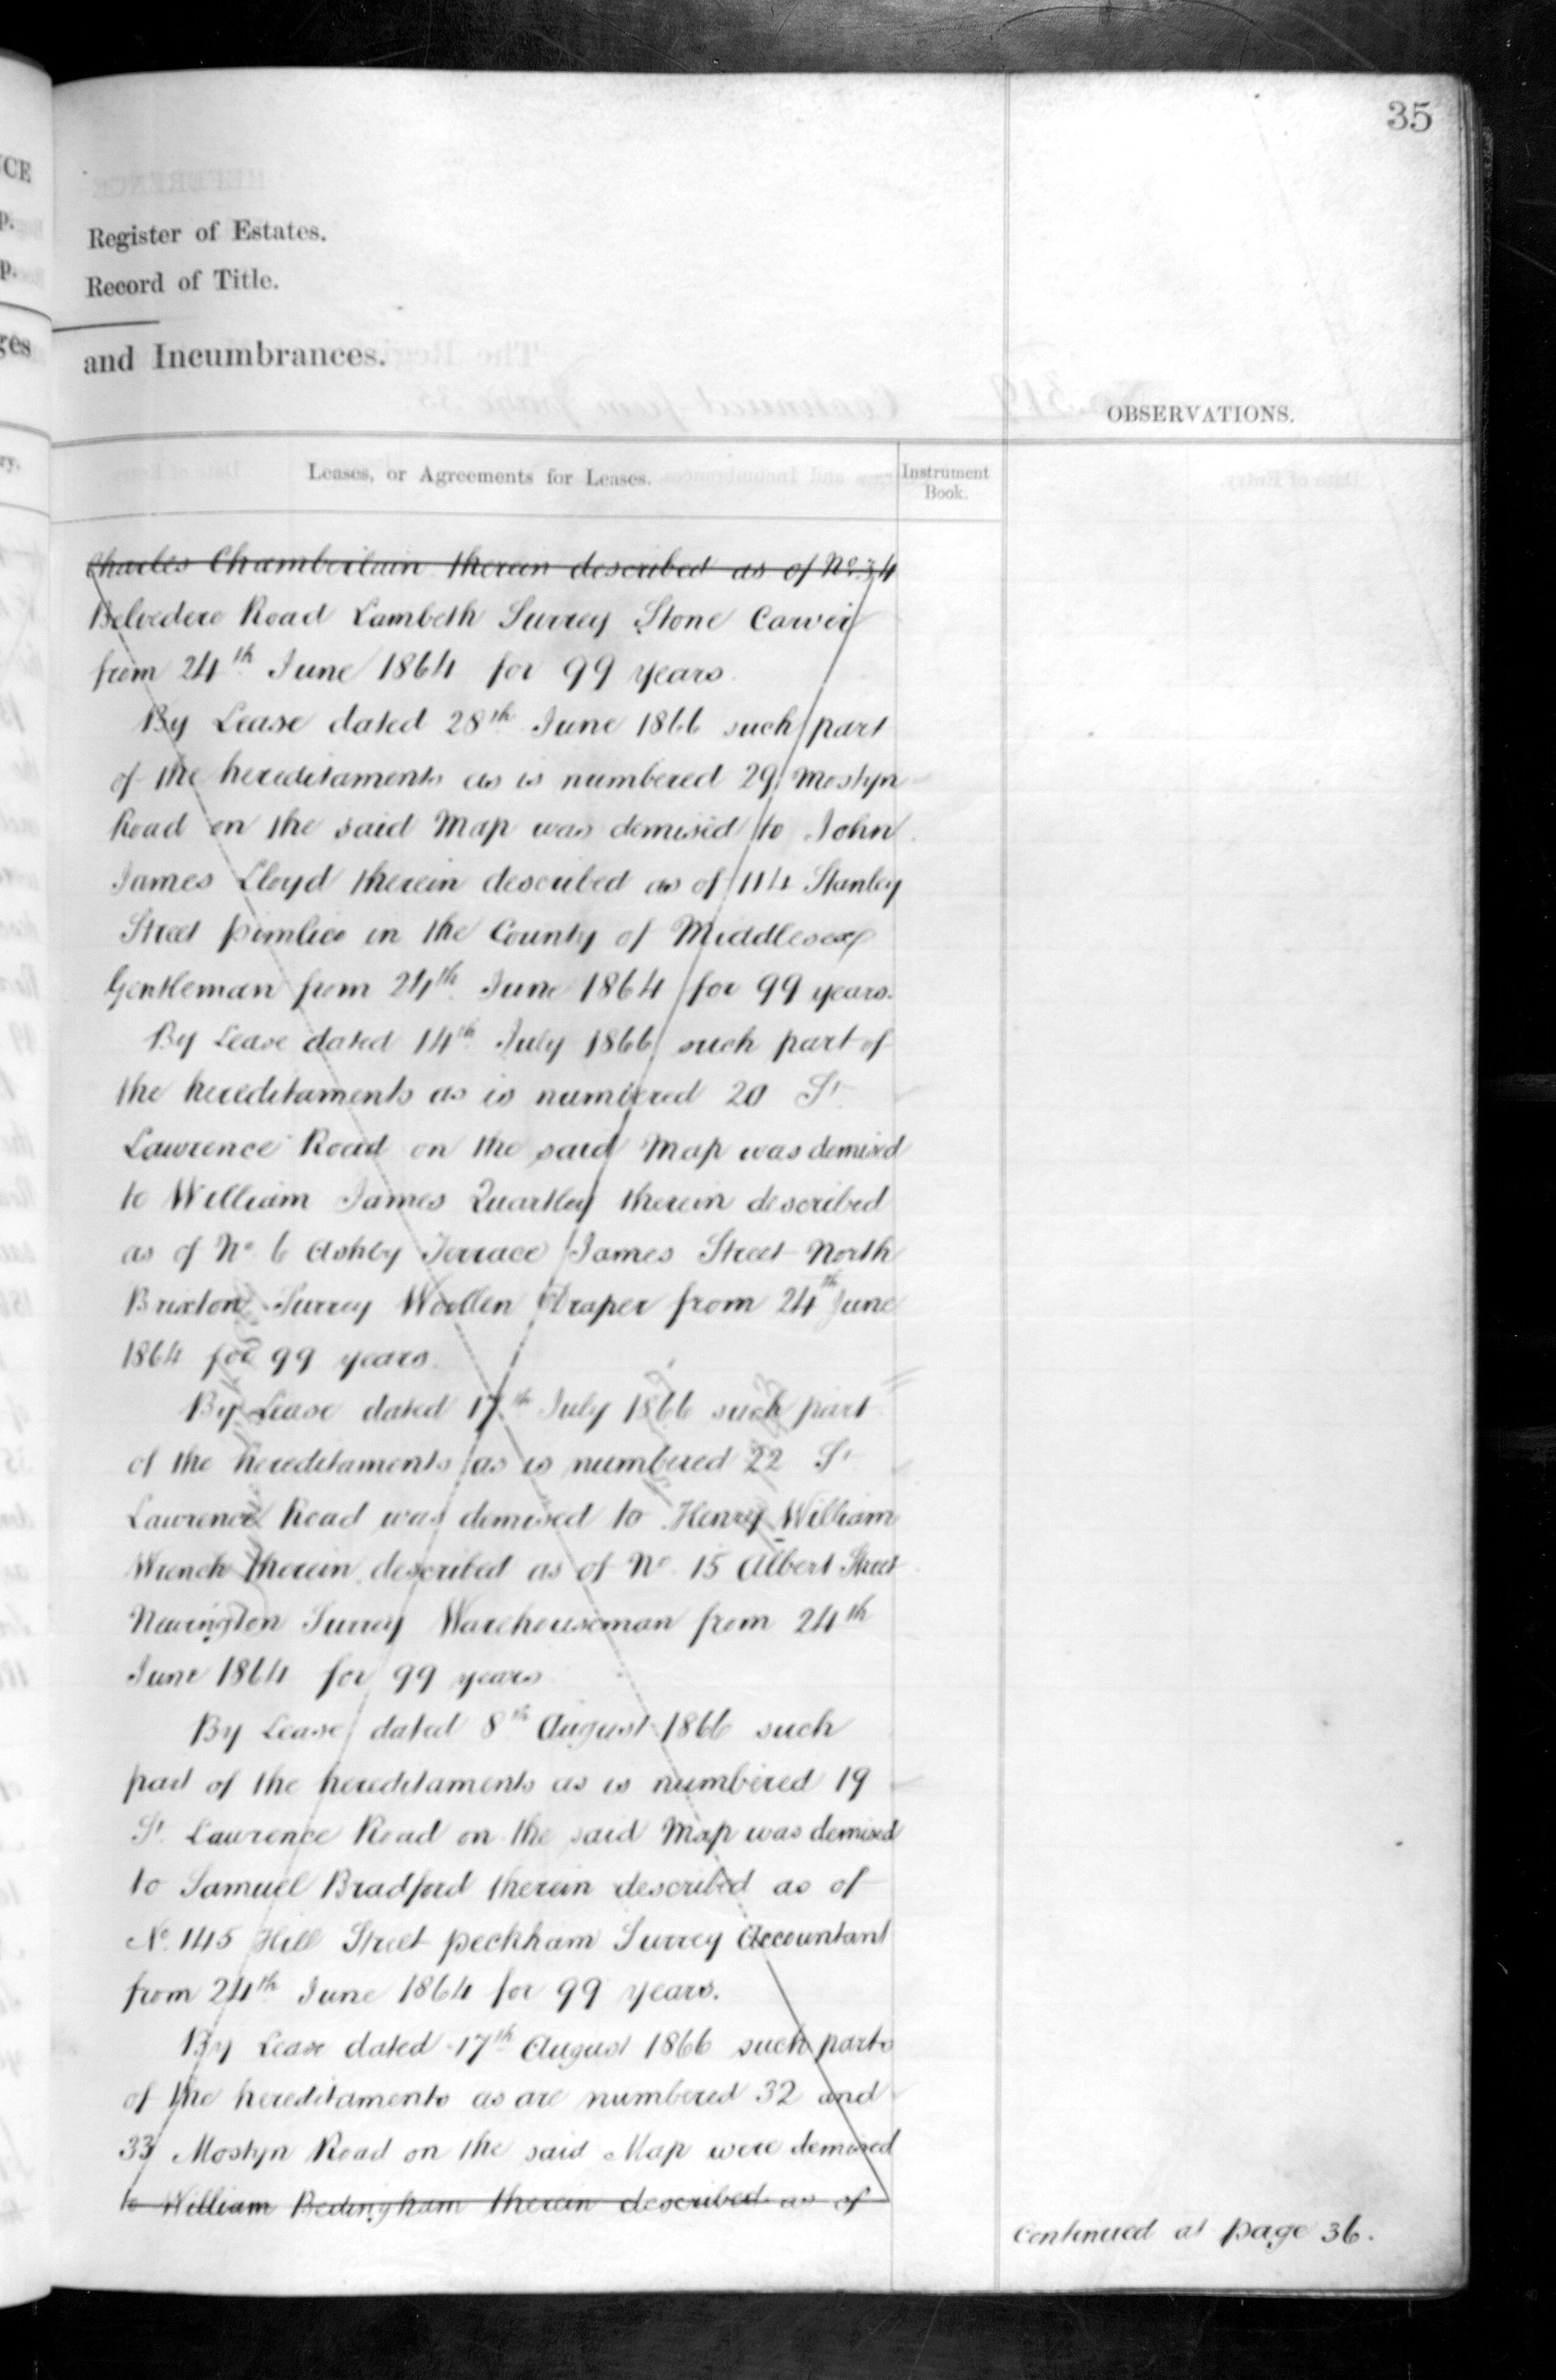 35
Register of Estates.
Record of Title.
and Incumbrances.
OBSERVATIONS.
Leases, or Agreements for Leases.
Instrument
Book.
Charles Chamberlain therein described as of No. 34
Belvedere Road Lambeth Surrey Stone Carver
from 24th June 1864 for 99 years.
By Lease dated 28th June 1866 such part
of the hereditaments as is numbered 29 Mostyn
Road on the said Map was demised to John
James Lloyd therein described as of 114 Stanley
Street Pimlico in the County of Middlesex
Gentleman from 24th June 1864 for 99 years.
By Lease dated 14th July 1866 such part of
the hereditaments as is numbered 20 St
Lawrence Road on the said Map was demised
to William James Quartley therein described
as of No 6 Ashby Terrace James Street North
Brixton Surrey Woollen Draper from 24th June
1864 for 99 years.
By Lease dated 17th July 1866 such part
of the hereditaments as is numbered 22 St
Lawrence Road was demised to Henry William
Wrench therein described as of No 15 Albert Street
Newington Surrey Warehouseman from 24th
June 1864 for 99 years
By Lease dated 8th August 1866 such
part of the hereditaments as is numbered 19
St. Lawrence Road on the said Map was demised
to Samuel Bradford therein described as of
No. 145 Hill Street Peckham Surrey Accountant
from 24th June 1864 for 99 years.
By Lease dated 17th August 1866 such parts
of the hereditaments as are numbered 32 and
33 Mostyn Road on the said Map were demised
to William Bedingham therein described as of
Continued at page 36.